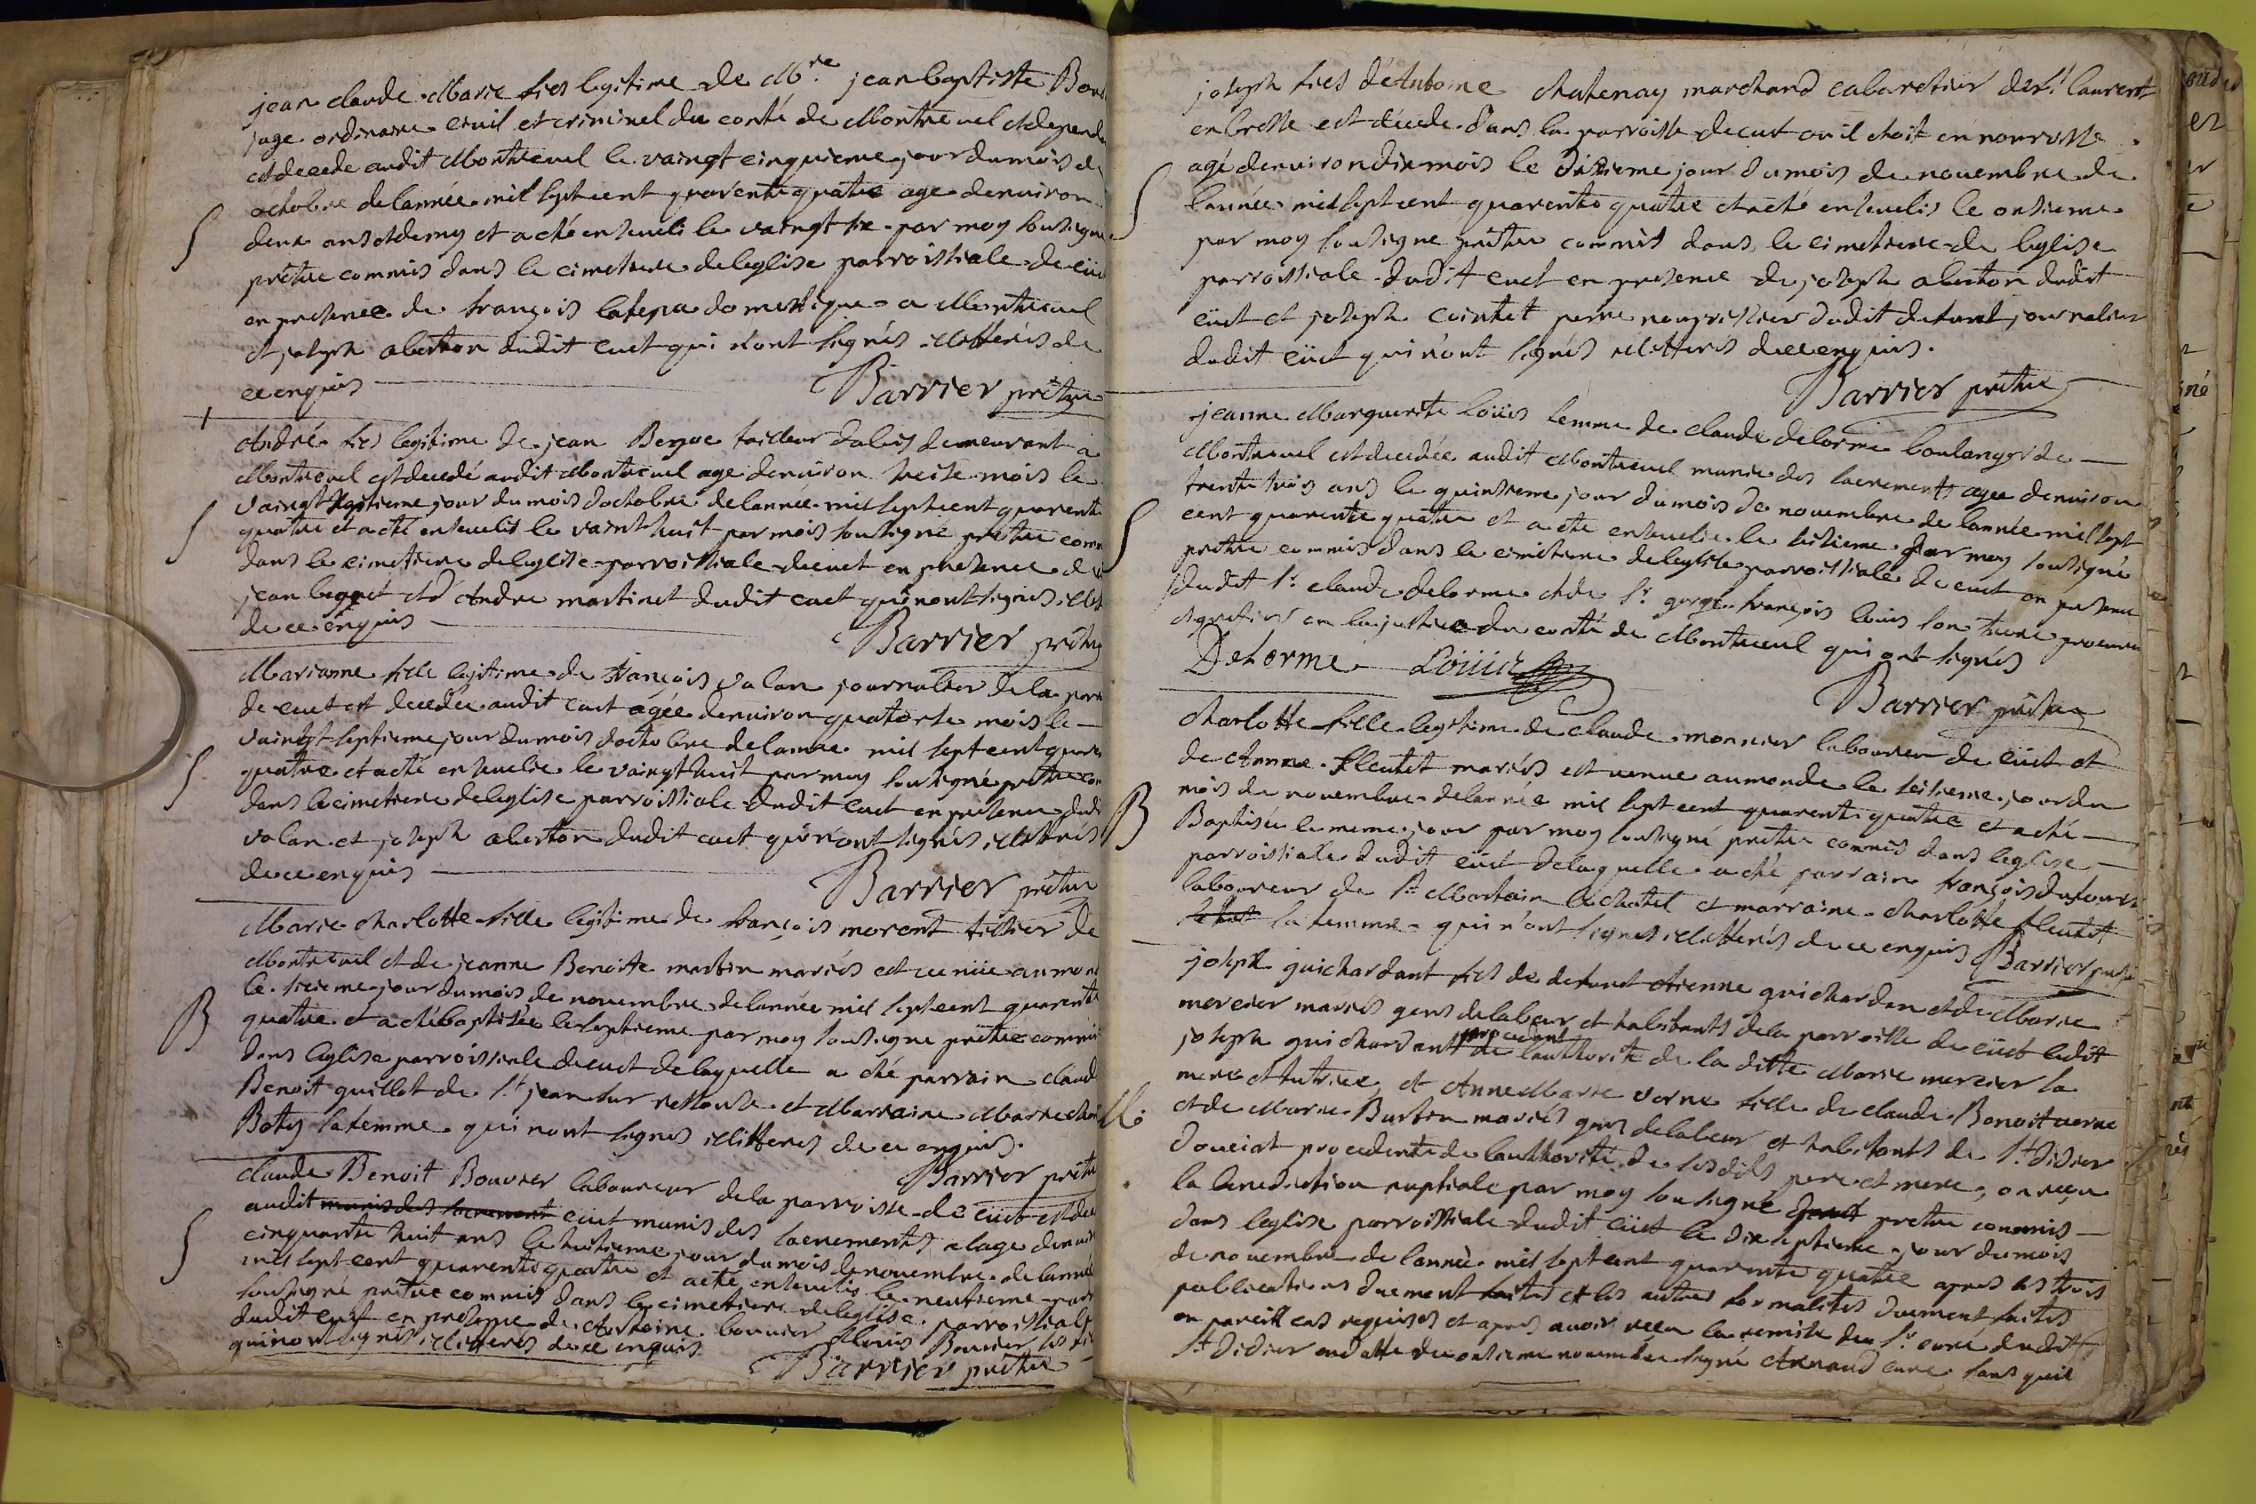 jean claude Marie fils legitime de Mre jean baptiste
juge ordinaire civil et criminel du conté de Montrevel
est decede audit Montrevel le vaingt cinquieme jour du mois de
octobre de lannée mil sept cent quarente quatre age denviron
deux ans et demy et a eté enseveli le vaingt six par moy soussigne
prêtre commis dans le cimetiere de leglise parroissiale de cüet
en presence de françois domestique a Montrevel
et joseph abeston dudit cuet qui nont signés illitterés de
ce enquis
Barrier prêtre
S
André fils legitime de jean tailleur dabis demeurant a
Montrevel est decedé audit Montrevel age denviron treise mois le
vaingt septieme jour du mois doctobre de lannee mil sept cent quarente
quatre et a eté enseveli le vaint huit par mois soussigné prêtre
dans le cimetiere de leglise parroissiale de cuet en presence de
jean et dAndre martinet dudit cuet qui nont signés
de ce enquis
Barrier prêtre
S
Marianne fille legitime de françois valan journalier de la
de cuet est decedée audit cuet agée denviron quatorse mois le
vaingt septieme jour du mois doctobre de lannee mil sept cent
quatre et a eté ensevelie le vaingt huit par moy soussigné prêtre
dans le cimetiere de leglise parroissiale dudit cuet en presence dudit
valan et joseph abeston dudit cuet qui n'ont signés illitterés
de ce enquis
Barrier prêtre
S
Marie charlotte fille legitime de françois morent de
Montrevel et de jeanne Benoitte martin mariés est venüe au monde
le sixieme jour du mois de novembre de lannée mil sept cent quarente
quatre et a eté baptisée le septieme par moy soussigne prêtre commis
dans leglise parroissiale de cuet de laquelle a eté parrain claude
Benoit guillot de St jean sur ressouse et Marraine Marie
sa femme qui nont signes illitteres de ce enquis.
Barrier prêtre
B
claude Benoit Bouvier laboureur de la parroisse de cüet est
audit cüet munis des sacrements a lage denviron
cinquante huit ans le huitieme jour du mois de novembre de lannée
mil sept cent quarente quatre et a eté enseveli le neufieme par
soussigné prêtre commis dans le cimetiere de leglise parroissiale
dudit cuet en presence de Antoine bouvier Bouvier
qui nont signés illitterés de ce enquis
Barrier prêtre
S
joseph fils dAntoine chatenay marchand cabaretier de St laurent
en bresse est décede dans la parroisse de cuet ou il etoit en nourrisse
agé denviron dix mois le dixieme jour du mois de novembre de
lannée mil sept cent quarente quatre et a eté enseveli le onsieme
par moy soussigne prêtre commis dans le cimetiere de leglise
parroissiale dudit cuet en presence de joseph abeston dudit
cüet et joseph cointet pere nourrissier dudit defunt journalier
dudit cüet qui n'ont signés illitterés de ce enquis.
Barrier prêtre
S
jeanne Marguerite Loüis femme de claude delorme boulanger de
Montrevel est decedée audit Montrevel munie des sacrements agee denviron
trente trois ans le quinsieme jour du mois de novembre de lannée mil sept
cent quarente quatre et a ete ensevelie le seisieme par moy soussigné
prêtre commis dans le cimetiere de leglise parroissiale de cuet en presence
dudit Sr claude delorme et de Sr françois louis son frere procureur
en la justice du conté de Montrevel qui ont signés
Delorme Loüis
Barrier prêtre
S
charlotte fille legitime de claude monnier laboureur de cüet et
de Anne fleutet mariés est venue au monde le seisieme jour du
mois de novembre de lannée mil sept cent quarente quatre et a eté
Baptisée le meme jour par moy soussigné prêtre commis dans leglise
parroissiale dudit cüet de laquelle a eté parrain françois dufour
laboureur de St Martain le chatel et marraine charlotte fleutet
sa femme qui n'ont signes illitterés de ce enquis Barrier prêtre
B
joseph guichardant fils de defunt etienne guichardan et de Marie
mercier mariés gens de labeur et habitants de la parroisse de cüet ledit
joseph guichardant procedant de lauthorité de la ditte Marie mercier sa
mere et tutrice, et Anne Marie verne fille de claude Benoit verne
et de Marie Burtin mariés gens de labeur et habitants de St Didier
doussiat procedente de lauthorité de sesdits pere et mere, on reçu
la benediction nuptiale par moy soussigné prêtre commis
dans leglise parroissiale dudit cüet le dix septieme jour du mois
de novembre de lannée mil sept cent quarente quatre apres les trois
publications duement faites et les autres formalités duement faites
en pareill cas requises et apres avoir reçu la remise du Sr curé dudit
St Didier en datte du onsieme novembre signé Arnaud curé sans quil
M.